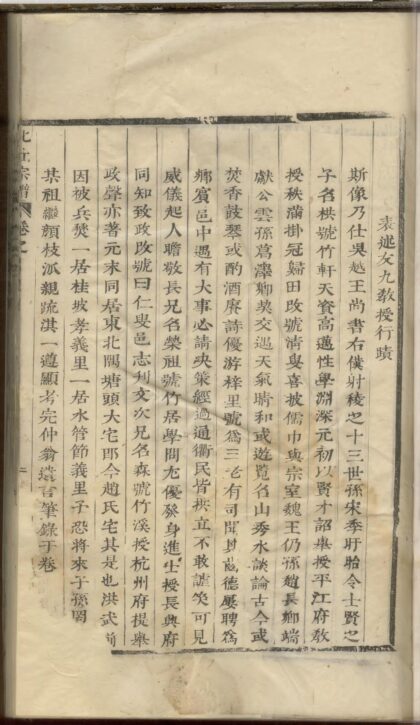 表述友九敎授行蹟
斯像乃仕吳越王尚書右僕射稜之十三世孫宋季盱眙令士賢之
子名栱號竹軒天資高邁性學淵深元初以賢才詔舉授平江府敎
授秩滿掛冠歸田改號清叟喜披儒巾與宗室魏王仍孫趙長鄉端
獻公雲孫葛瀛鄉契交遇天氣晴和或遊覽名山秀水談論古今或
焚香鼓琴或酌酒賡詩優游梓里號爲三老有司聞其碩德屢聘爲
鄉賓邑中遇有大事必請央策經過通衢民皆拱立不敢譁笑可見
威儀起人瞻敬長兄名榮祖號竹居學問尤優發身進士授長興府
同知致政改號曰仁叟邑志刋文次兄名森號竹溪授杭州府提舉
政聲亦著元末同居東北關塘頭大宅即今趙氏宅其是也洪武前
因被兵焚一居桂坡孝義里一居水管節義里子恐將來子孫罔
某祖繼顏枝派親疏淇一遵顯考完仲翁遺言筆錄于卷
北丘宗譜 卷之